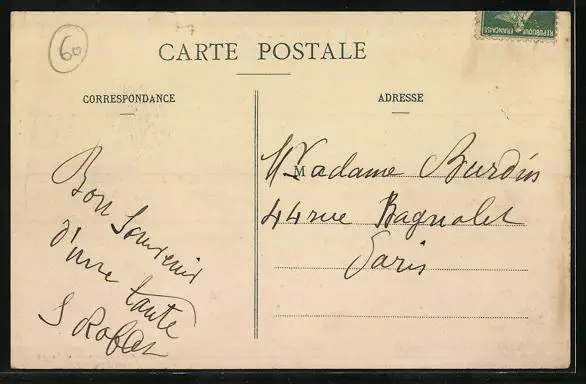 60
RÉPUBLIQUE FRANÇAISE
CARTE POSTALE
CORRESPONDANCE
Bon Souvenir
d'une tante
ADRESSE
Madame Burdin
44 rue Bagnolet
Paris